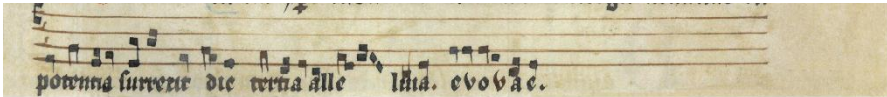 potentia surrexit die tertia alle luia. e v o v a e.